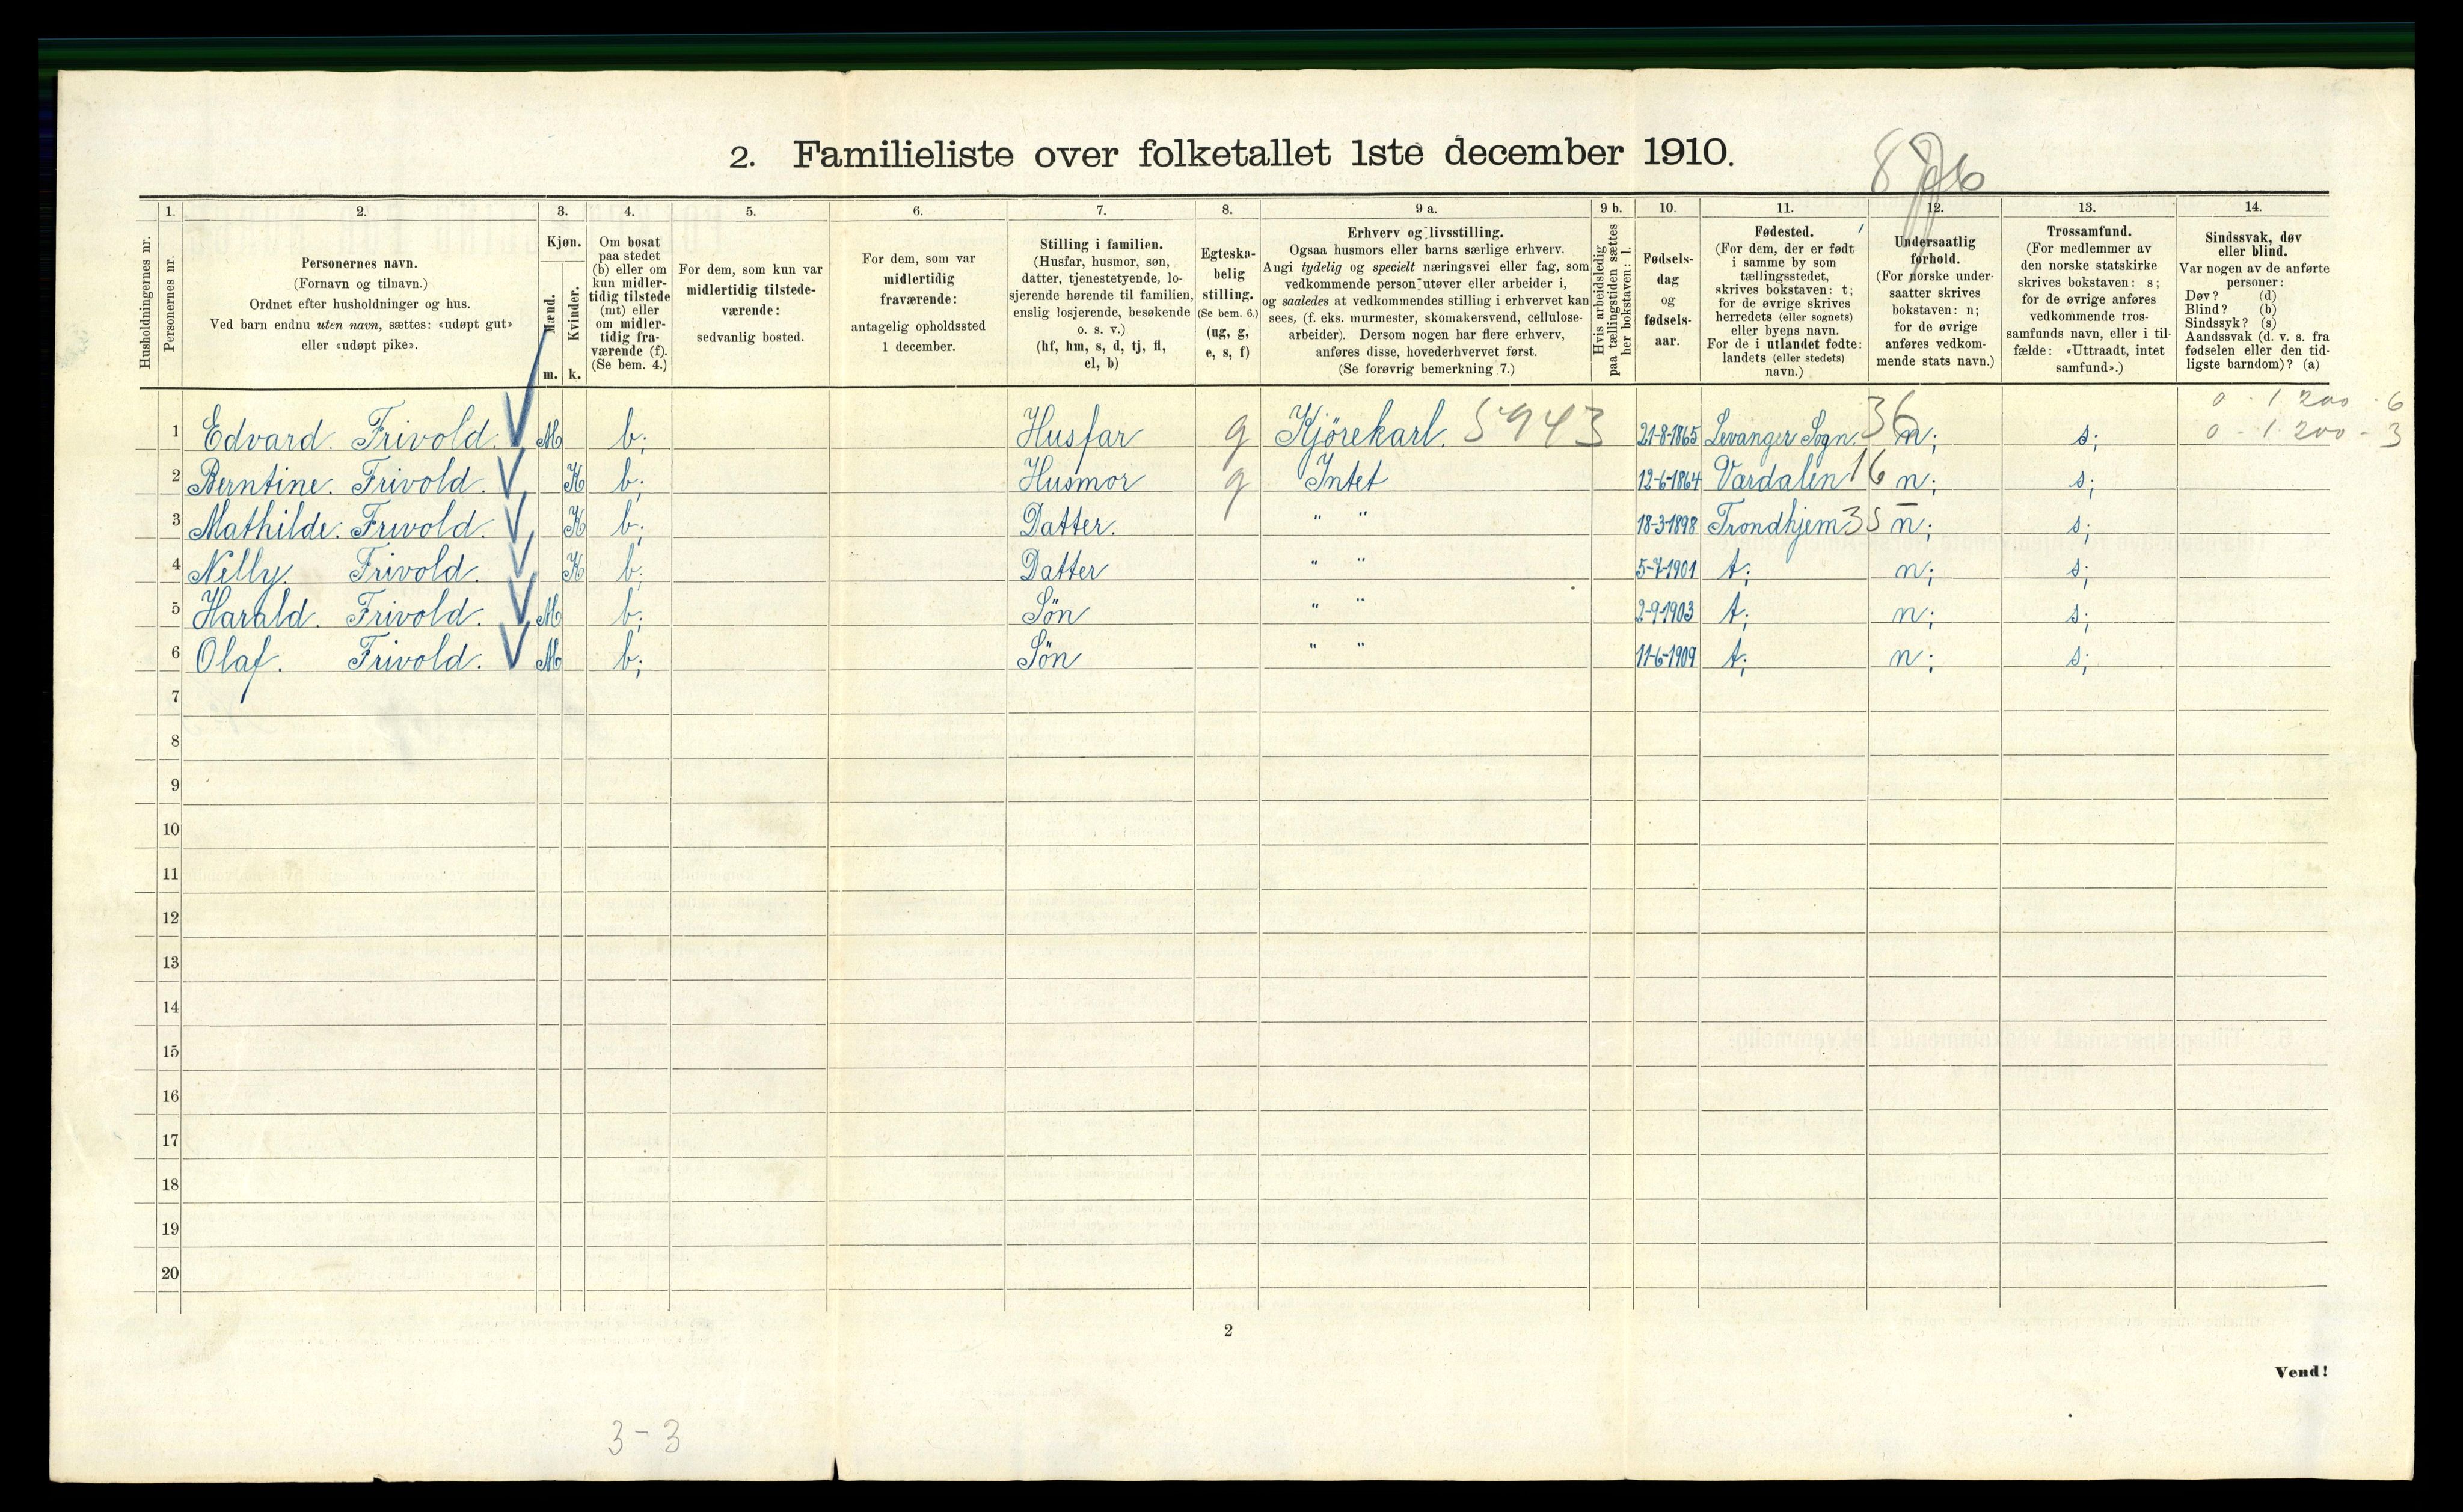 2. Familieliste over folketallet 1ste december 1910.
1. 2. 3. 4. 5. 6. 7. 8. 9 a. 9 b. 10. 11. 12. 13. 14.
Husholdningernes nr.
Personernes nr.
Personernes navn.
(Fornavn og tilnavn.)
Ordnet efter husholdninger og hus.
Ved barn endnu uten navn, sættes: «udøpt gut»
eller «udøpt pike».
Kjøn.
Mænd.
Kvinder.
m. k.
Om bosat
paa stedet
(b) eller om
kun midler-
tidig tilstede
(mt) eller
om midler-
tidig fra-
værende (f).
(Se bem. 4.)
For dem, som kun var
midlertidig tilstede-
værende:
sedvanlig bosted.
For dem, som var
midlertidig
fraværende:
antagelig opholdssted
1 december.
Stilling i familien.
(Husfar, husmor, søn,
datter, tjenestetyende, lo-
sjerende hørende til familien,
enslig losjerende, besøkende
o. s. v.)
(hf, hm, s, d, tj, fl,
el, b)
Egteska-
belig
stilling.
(Se bem. 6.)
(ug, g,
e, s, f)
Erhverv og livsstilling.
Ogsaa husmors eller barns særlige erhverv.
Angi tydelig og specielt næringsvei eller fag, som
vedkommende person utøver eller arbeider i,
og saaledes at vedkommendes stilling i erhvervet kan
sees, (f. eks. murmester, skomakersvend, cellulose-
arbeider). Dersom nogen har flere erhverv,
anføres disse, hovederhvervet først.
(Se forøvrig bemerkning 7.)
Hvis arbeidsledig
paa tællingstiden sættes
her bokstaven: l.
Fødsels-
dag
og
fødsels-
aar.
Fødested.
(For dem, der er født
i samme by som
tællingsstedet,
skrives bokstaven: t;
for de øvrige skrives
herredets (eller sognets)
eller byens navn.
For de i utlandet fødte:
landets (eller stedets)
navn.)
Undersaatlig
forhold.
(For norske under-
saatter skrives
bokstaven: n;
for de øvrige
anføres vedkom-
mende stats navn.)
Trossamfund.
(For medlemmer av
den norske statskirke
skrives bokstaven: s;
for de øvrige anføres
vedkommende tros-
samfunds navn, eller i til-
fælde: «Uttraadt, intet
samfund».)
Sindssvak, døv
eller blind.
Var nogen av de anførte
personer:
Døv? (d)
Blind? (b)
Sindssyk? (s)
Aandssvak (d. v. s. fra
fødselen eller den tid-
ligste barndom)? (a)
0 - 1.200 - 6
1 Edvard. Frivold. M b; Husfar g Kjörekarl. 5943 21-8-1865 Levanger Sogn. 36 n; s; 0 - 1.200 - 3
2 Berntine. Frivold. K b; Husmor g Intet 12-6-1864 Værdalen 16 n; s;
3 Mathilde. Frivold. K b; Datter. " " 18-3-1898 Trondhjem 35 n; s;
4 Nelly. Frivold. K b; Datter " " 5-7-1901 t; n; s;
5 Harald. Frivold. M b; Søn " " 2-9-1903 t; n; s;
6 Olaf. Frivold. M b; Søn " " 11-6-1909 t; n; s;
7
8
9
10
11
12
13
14
15
16
17
18
19
20
2
Vend!
3-3